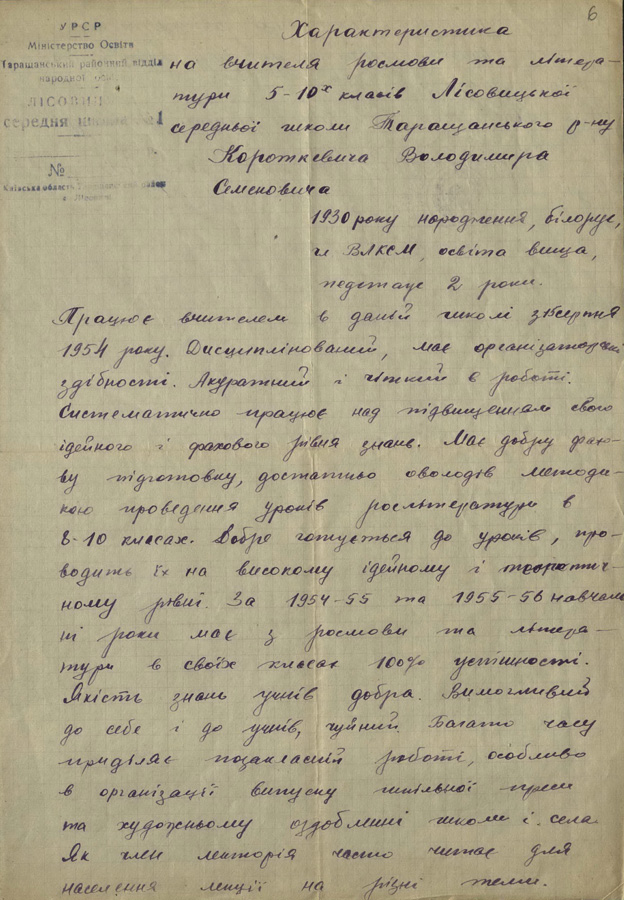 6
УРСР
Міністерство Освіти
Таращанський районний відділ
народної
ЛІСОВИЦ
середня
№
Київська область район
Характеристика
на вчителя росмови та літера-
тури 5-10х класів Лісовицької
середньої школи Таращанського р-ну
Короткевича Володимира
Семеновича
1930 року народження, білорус,
чл ВЛКСМ, освіта вища,
педстаж 2 роки.
Працює вчителем в даній школі з 15 серпня
1954 року. Дисциплінований, має організаторські
здібності. Акуратний і чіткий в роботі.
Систематично працює над підвищенням свого
ідейного і фахового рівня знань. Має добру фахо-
ву підготовку, достатньо оволодів методи-
кою проведення уроків рослітератури в
8-10 класах. Добре готується до уроків, про-
водить їх на високому ідейному і теоретич-
ному рівні. За 1954-55 та 1955-56 навчаль
ні роки має з росмови та літера-
тури в своїх класах 100% успішності.
Якість знань учнів добра. Вимогливий
до себе і до учнів, чуйний. Багато часу
приділяє позакласній роботі, особливо
в організації випуску шкільної преси
та художньому оздобленні школи і села.
Як член лекторія часто читає для
населення лекції на різні теми.